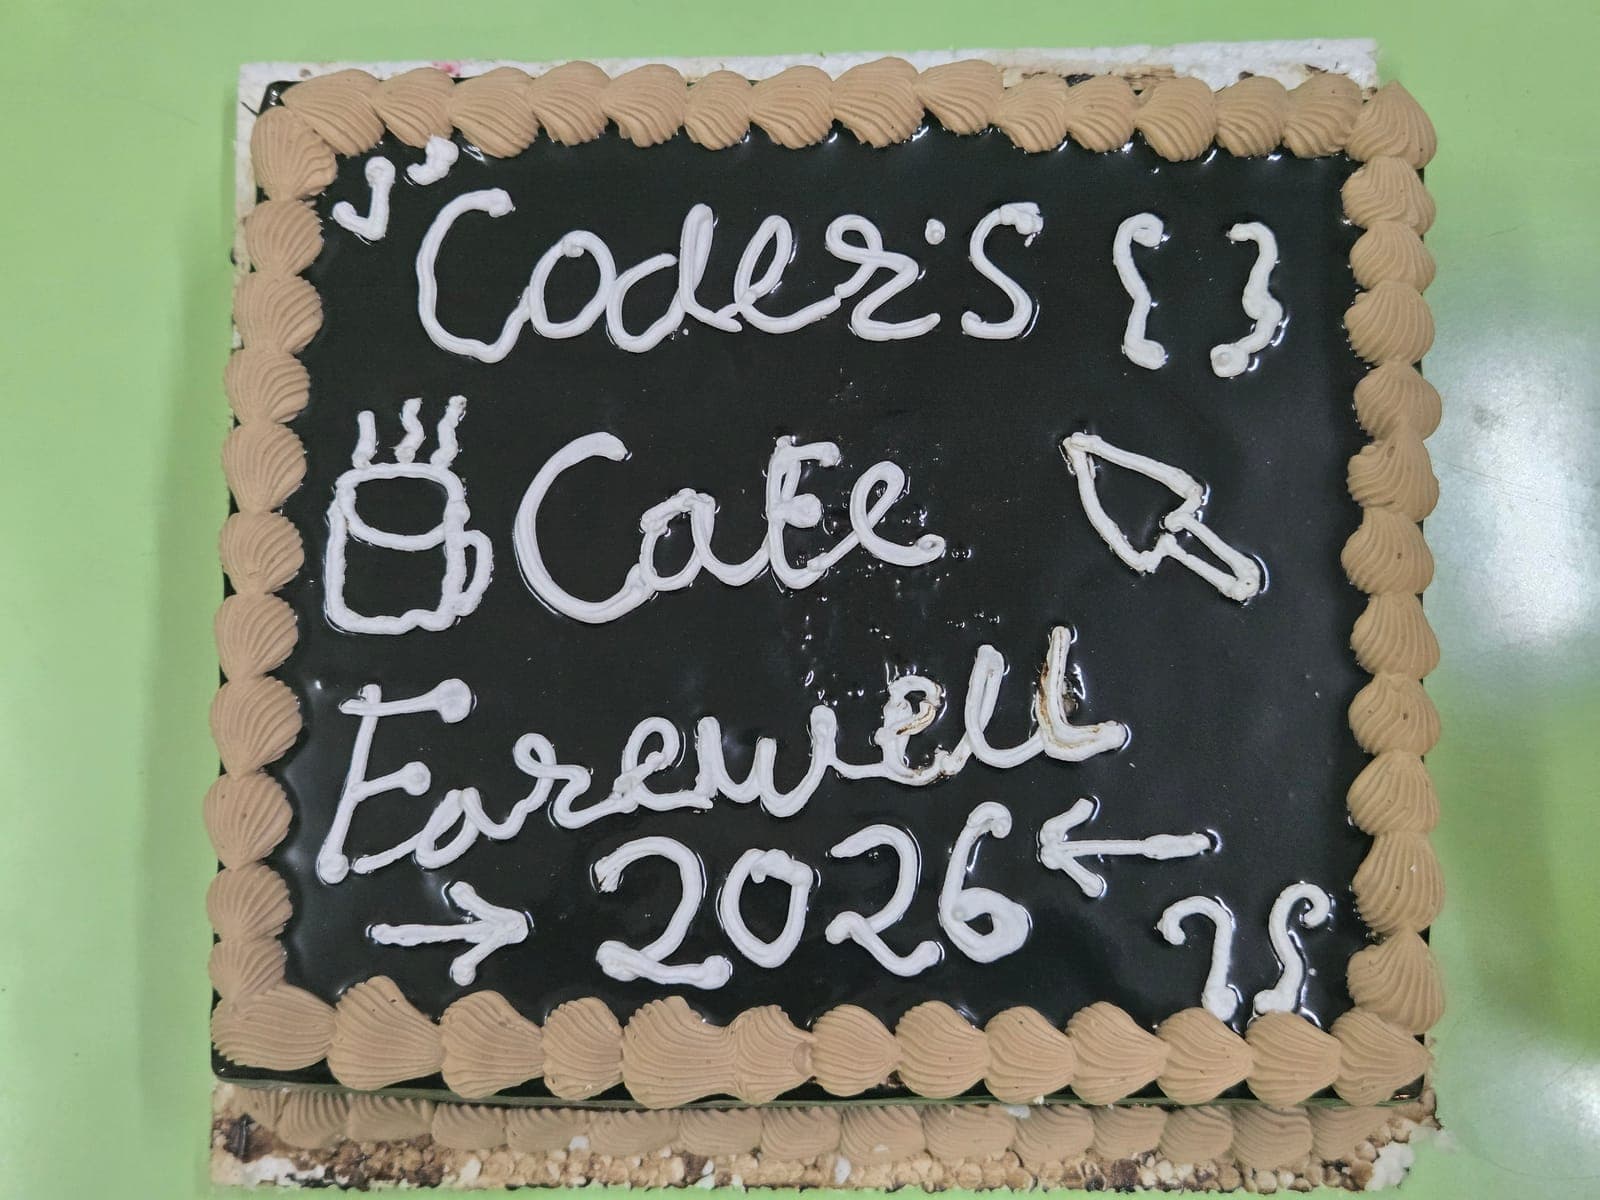 Coder's { }
Cafe
Farewell
→ 2026 ←